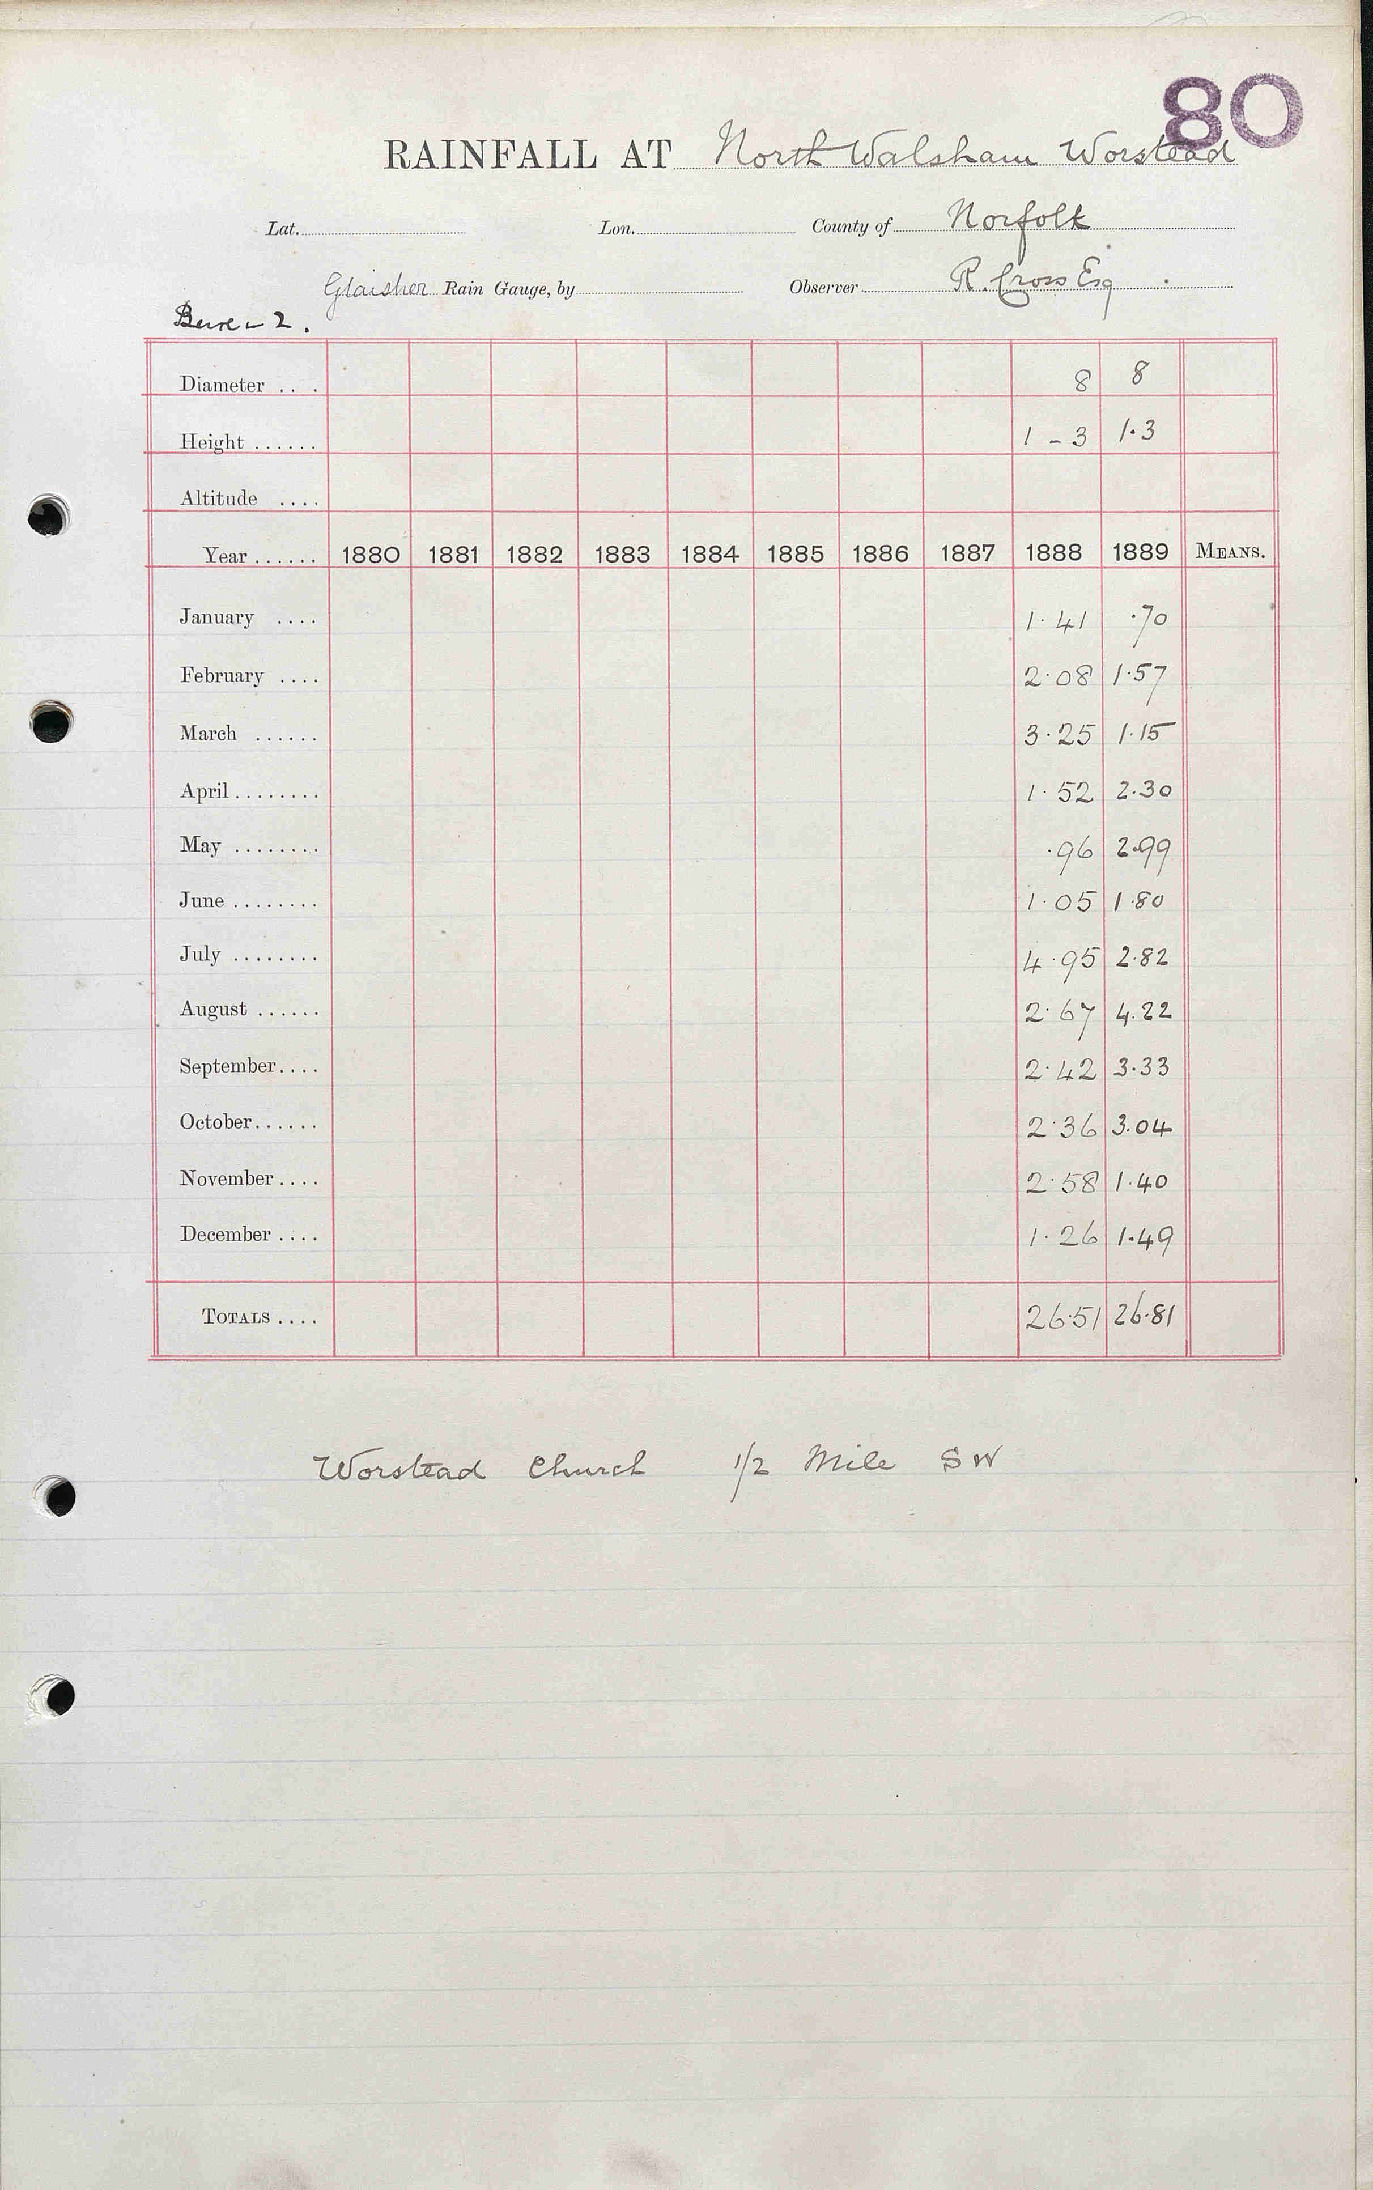 80
RAINFALL AT North Walsham Worstead
Lat. Lon. County of Norfolk
Glaisher Rain Gauge, by Observer R. Cross Esq
Bure - 2.
Diameter .... 8 8
Height ...... 1 - 3 1.3
Altitude ....
Year ...... 1880 1881 1882 1883 1884 1885 1886 1887 1888 1889 MEANS.
January .... 1.41 .70
February .... 2.08 1.57
March ...... 3.25 1.15
April ........ 1.52 2.30
May ........ .96 2.99
June ........ 1.05 1.80
July ........ 4.95 2.82
August ...... 2.67 4.22
September.... 2.42 3.33
October...... 2.36 3.04
November.... 2.58 1.40
December .... 1.26 1.49
TOTALS .... 26.51 26.81
Worstead Church 1/2 Mile SW